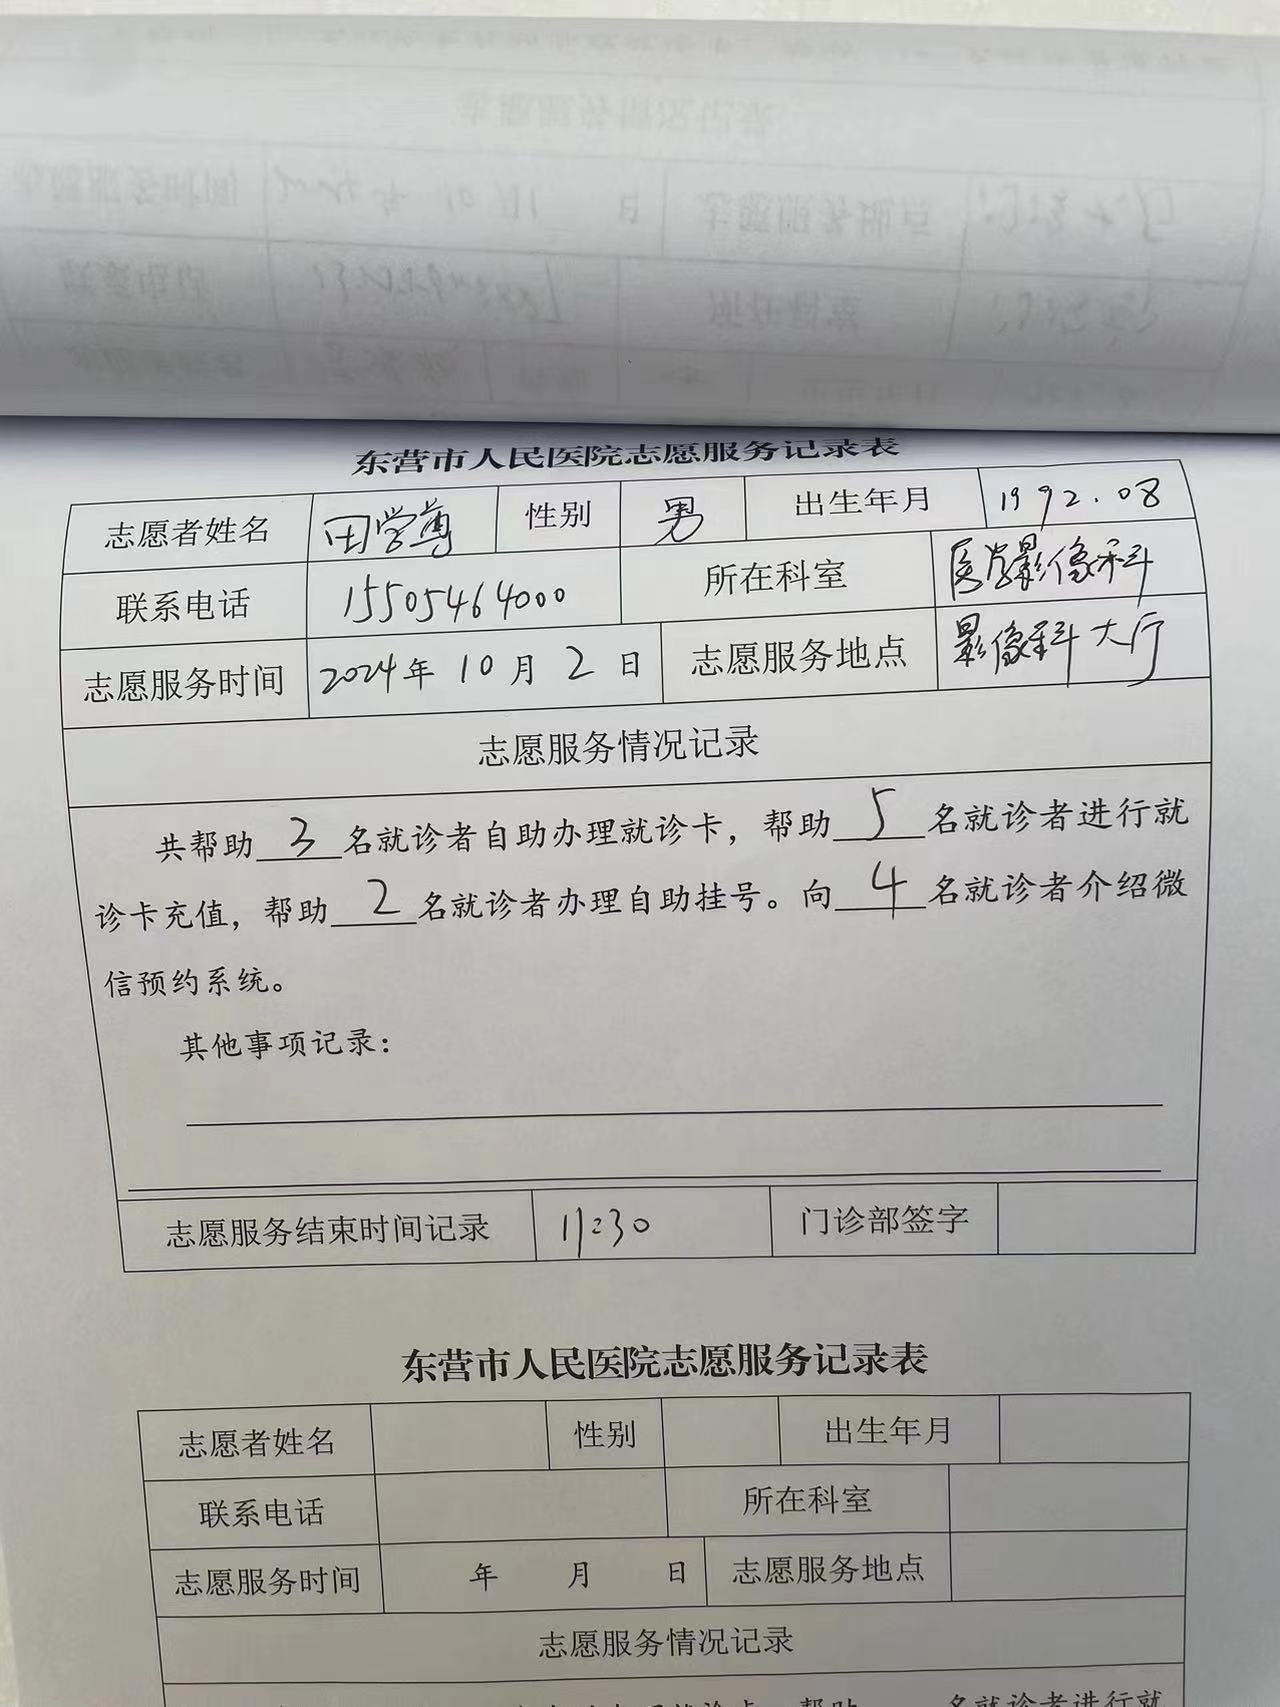 东营市人民医院志愿服务记录表
志愿者姓名 田学尊 性别 男 出生年月 1992.08
联系电话 15505464000 所在科室 医学影像科
志愿服务时间 2024年 10月 2日 志愿服务地点 影像科大厅
志愿服务情况记录
共帮助 3 名就诊者自助办理就诊卡，帮助 5 名就诊者进行就
诊卡充值，帮助 2 名就诊者办理自助挂号。向 4 名就诊者介绍微
信预约系统。
其他事项记录：
志愿服务结束时间记录 11:30 门诊部签字
东营市人民医院志愿服务记录表
志愿者姓名 性别 出生年月
联系电话 所在科室
志愿服务时间 年 月 日 志愿服务地点
志愿服务情况记录